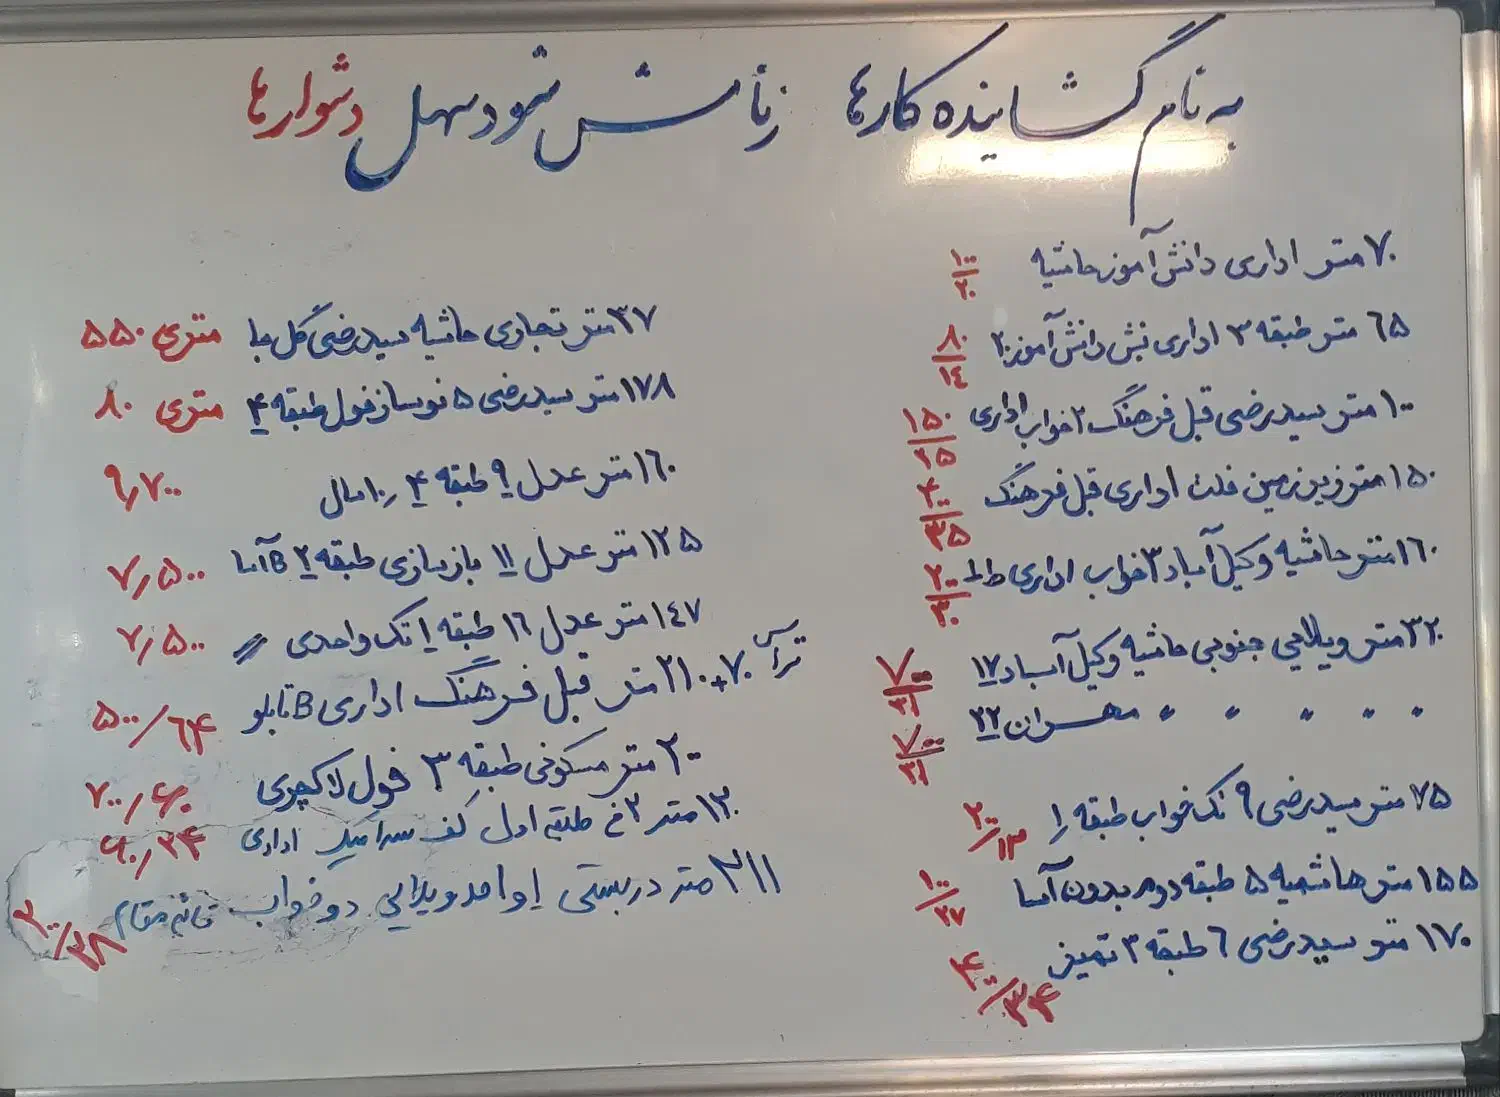 به نام گشاینده کارها ز نامش شود سهل دشوارها
۷۰ متر اداری دانش آموز حاشیه ۱۰۰/۲۰
۶۵ متر طبقه ۳ اداری نبش دانش آموز ۲۰ ۸۰/۱۴
۱۰۰ متر سیدرضی قبل فرهنگ ۲ خواب اداری ۱۵۰/۲۵
۱۵۰ متر زیرزمین فلت اداری قبل فرهنگ ۴۰۰/۳۵
۱۶۰ متر حاشیه وکیل آباد ۳ خواب اداری ۲۰۰/۳۰
۳۲۰ متر ویلایی جنوبی حاشیه وکیل آباد ۱۷ ۷۰۰
" " " " " مهران ۲۲ ۷۰۰
۷۵ متر سیدرضی ۹ تک خواب طبقه ۱ ۲۰۰/۱۳
۱۵۵ متر هاشمیه ۵ طبقه دوم بدون آسا ۱۰۰/۲۷
۱۷۰ متر سیدرضی ۶ طبقه ۳ تمیز ۴۰۰/۳۴
۳۷ متر تجاری حاشیه سیدرضی گل ما متری ۵۵۰
۱۷۸ متر سیدرضی ۵ نوساز فول طبقه ۴ متری ۸۰
۱۶۰ متر عدل ۹ طبقه ۴ ۱۰ سال ۹٫۷۰۰
۱۲۵ متر عدل ۱۱ بازسازی طبقه ۲ B آسا ۷٫۵۰۰
۱۴۷ متر عدل ۱۶ طبقه ۱ تک واحدی " ۷٫۵۰۰
۲۱۰+۷۰ تراس متر قبل فرهنگ اداری B تابلو ۵۰۰/۶۴
۲۰۰ متر مسکونی طبقه ۳ فول لاکچری ۷۰۰/۶۰
۱۳۰ متر ۲ خ طبقه اول کف سرامیک اداری ۶۰۰/۲۴
۲۱۱ متر دربستی ۱ واحد ویلایی دو خواب قائم مقام ۲۰۰/۲۸